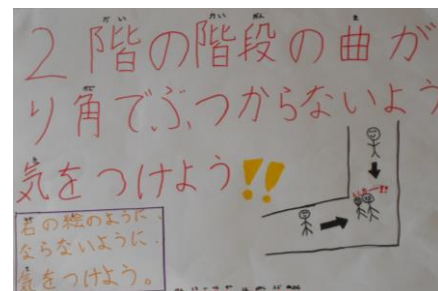 2階の階段の曲が
り角でぶつからないよう
気をつけよう!!
右の絵のように、
ならないように、
気をつけよう。